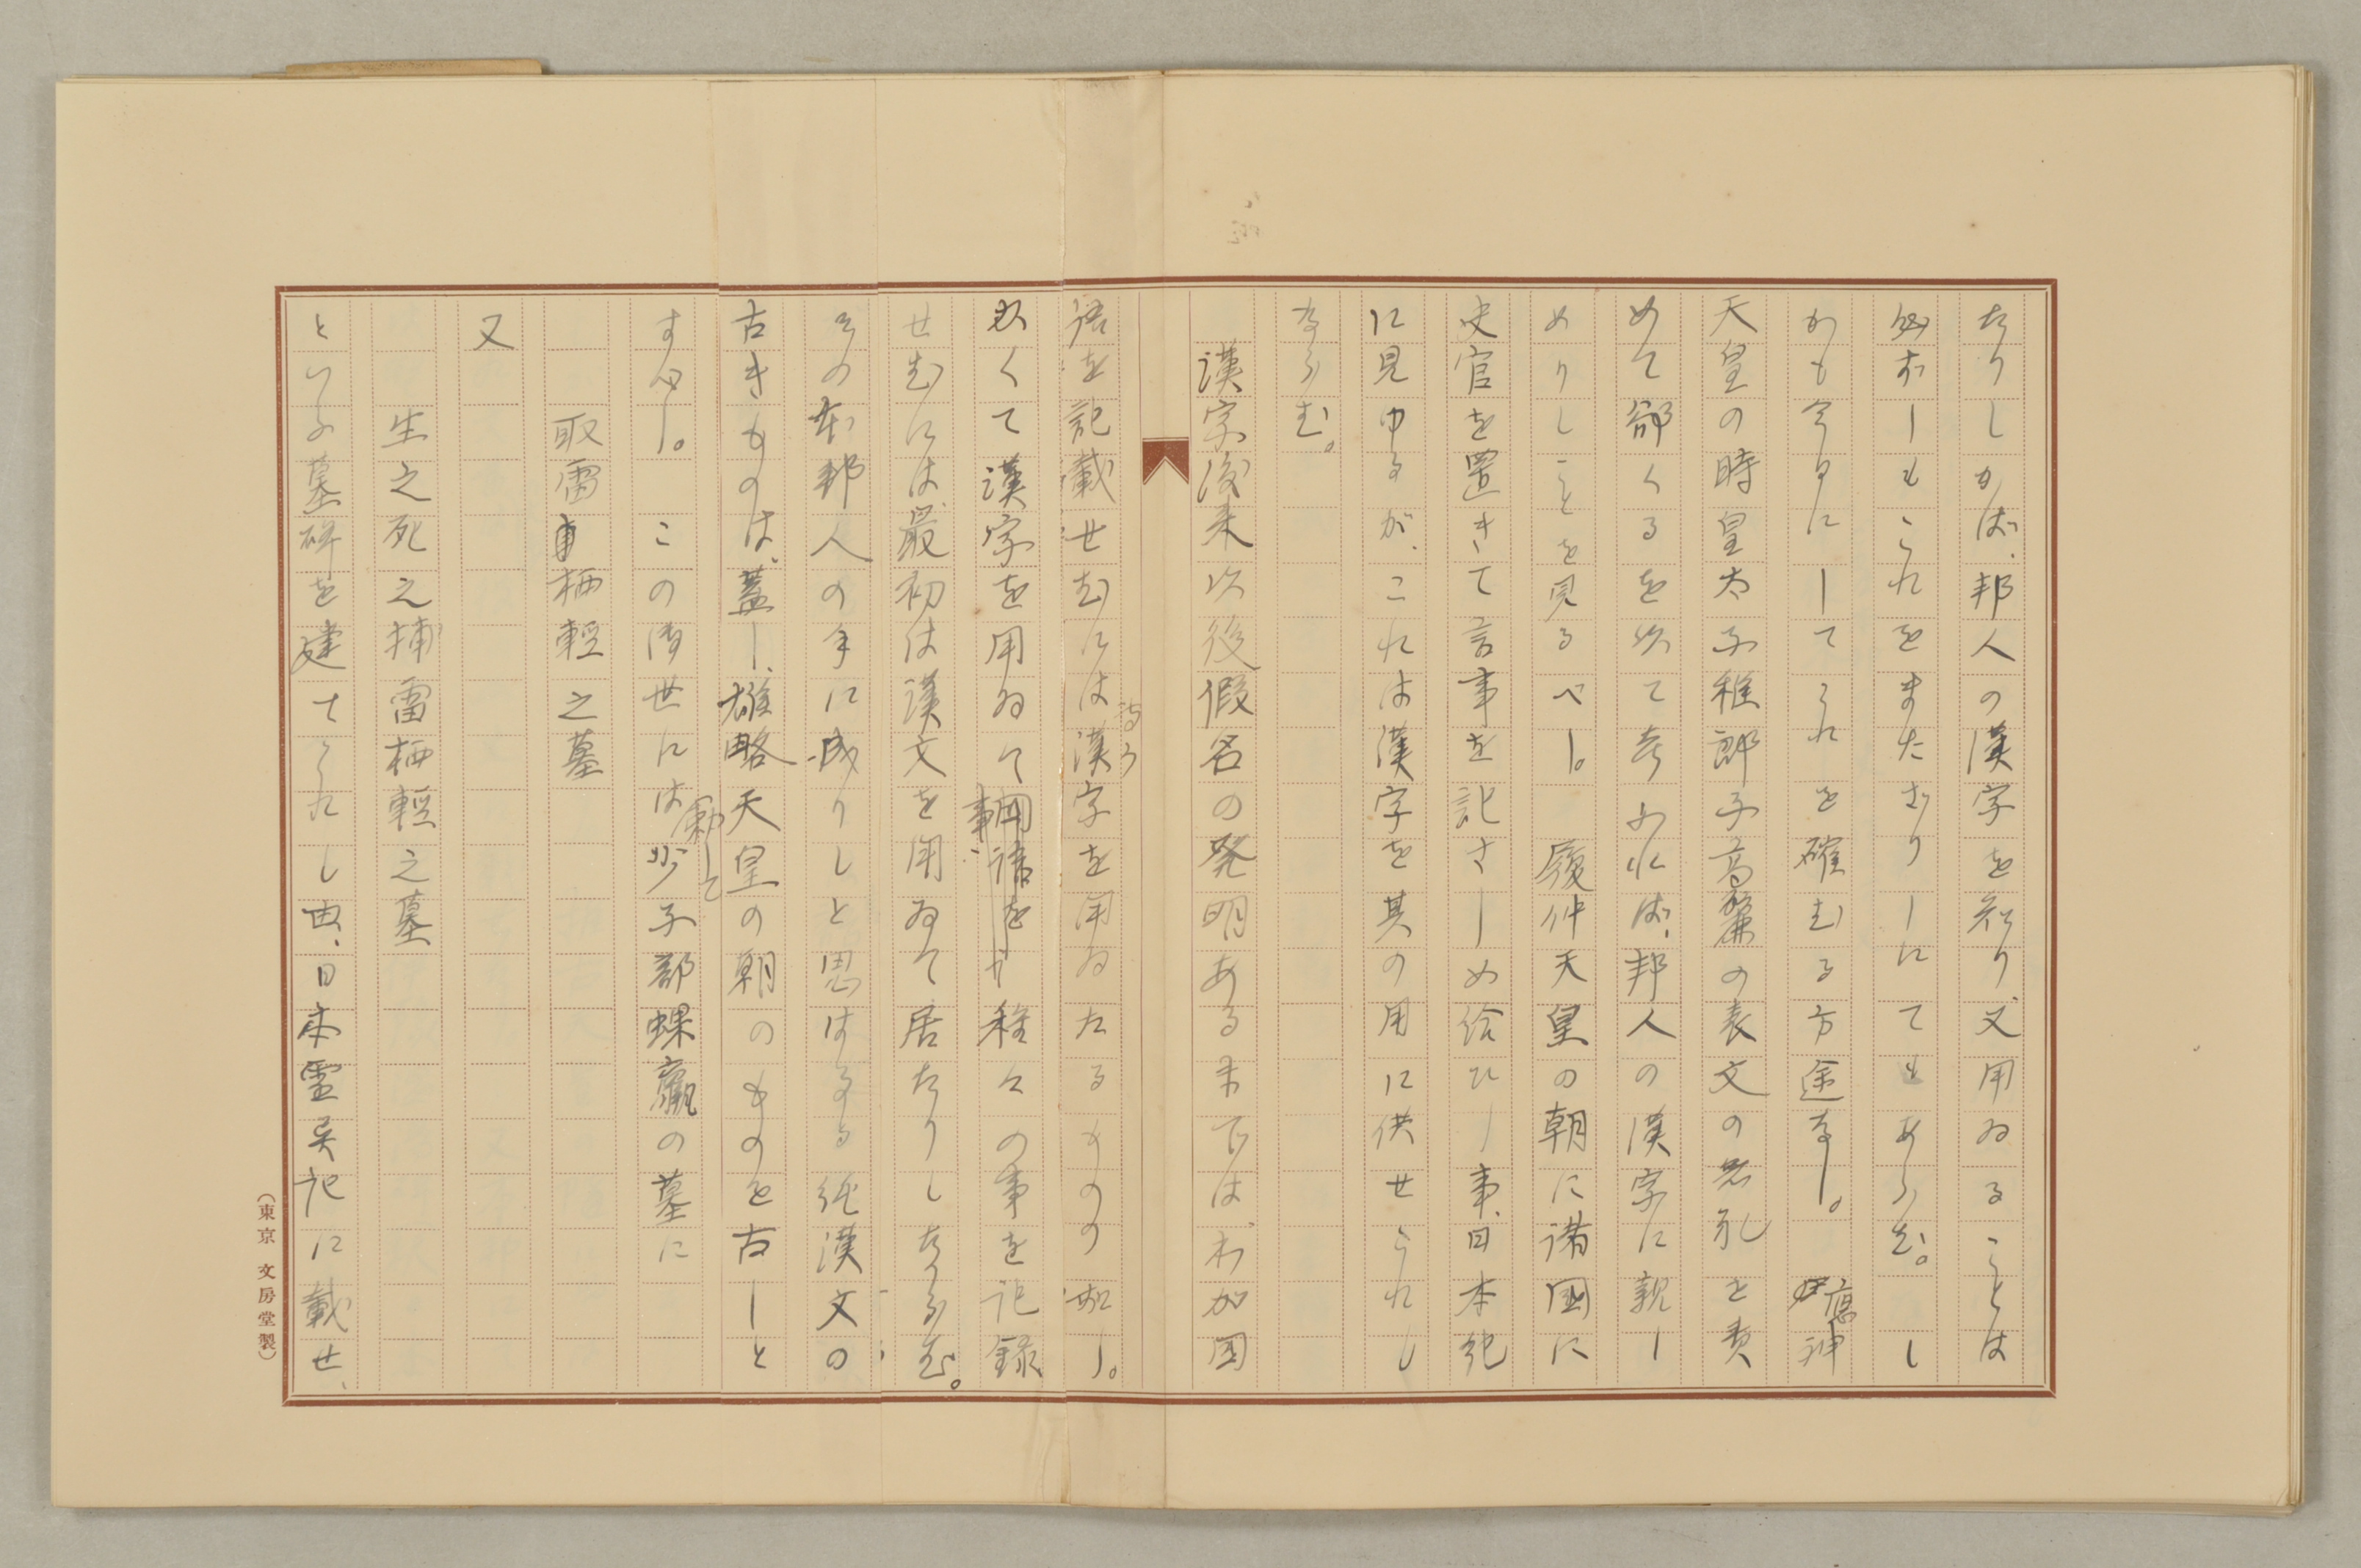 たりしかば、邦人の漢字を知り、又用ゐることは
必ずしもこれをまたざりしにてもあらむ。し
かも今日にしてこれを確むる方途なし。應神
天皇の時皇太子稚郎子高麗の表文の无礼を責
めて郤くるを以て考ふれば、邦人の漢字に親し
めりしことを見るべし。履仲天皇の朝に諸國に
史官を置きて言事を記さしめ給ひし事、日本紀
に見ゆるが、これは漢字を其の用に供せられし
ならむ。
漢字渡来以後假名の発明あるまでは、わが国
語を記載せむには漢字を用ゐたるものの如し。
専ら
かくて漢字を用ゐて国語を種々の事を記録
事
せむには、最初は漢文を用ゐて居たりしならむ。
その本邦人の手に成りしと思はるる純漢文の
古きものは、蓋し、雄略天皇の朝のものを古しと
すべし。この御世には少子部蜾蠃の墓に
勅して
取雷栖軽之墓
又
生之死之捕雷栖軽之墓
といふ墓碑を建てられし由、日本霊異記に載せ、
(東京 文房堂製)